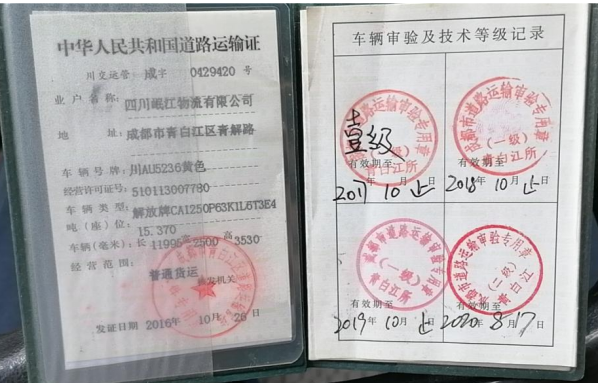 中华人民共和国道路运输证
川交运管 成字 0429420 号
业户名称: 四川岷江物流有限公司
地 址: 成都市青白江区青解路
车辆号牌: 川AU5236黄色
经营许可证号: 510113007780
车辆类型: 解放牌CA1250P63K1L6T3E4
吨(座)位: 15.370
车辆(毫米): 长 11995 宽 2500 高 3530
经营范围:
普通货运
核发机关
发证日期 2016年 10月 28日
车辆审验及技术等级记录
壹级
成都市道路运输审验专用章
(一级)
青白江所
有效期至
2017年 10月 止日
成都市道路运输审验专用章
(一级)
青白江所
有效期至
2018年 10月 止日
成都市道路运输审验专用章
(一级)
青白江所
有效期至
2019年 10月 止日
成都市道路运输审验专用章
(二级)
青白江
有效期至
2020年 8月 17日